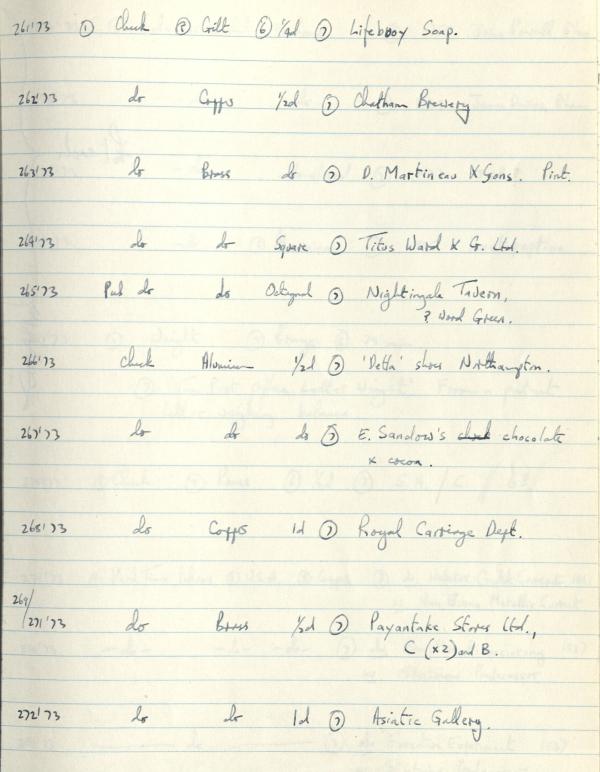 261'73 ① Check ⑤ Gilt ⑥ 1/4d ⑦ Lifebuoy Soap.
262'73 do Copper 1/2d ⑦ Chatham Brewery
263'73 do Brass do ⑦ D. Martineau & Sons. Pint.
264'73 do do Square ⑦ Titus Ward & Co. Ltd.
265'73 Pub do do Octagonal ⑦ Nightingale Tavern,
? Wood Green.
266'73 check Aluminium 1/2d ⑦ 'Detta' shoes Northampton.
267'73 do do do ⑦ E. Sandow's chocolate
& cocoa.
268'73 do Copper 1d ⑦ Royal Carriage Dept.
269/
271'73 do Brass 1/2d ⑦ Payantake Stores Ltd.,
C (x2) and B.
272'73 do do 1d ⑦ Asiatic Gallery.